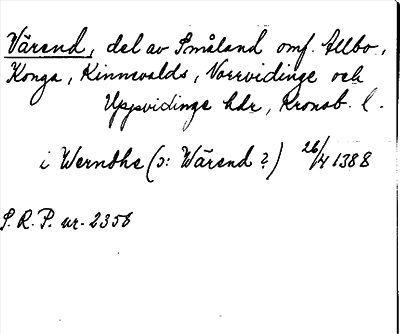 Värend, del av Småland omf. Allbo,
Konga, Kinnevalds, Norrvidinge och
Uppvidinge hdr, Kronob. l.
i Werndhe (ɔ: Wärend?) 26/4 1388
S. R. P. nr. 2356